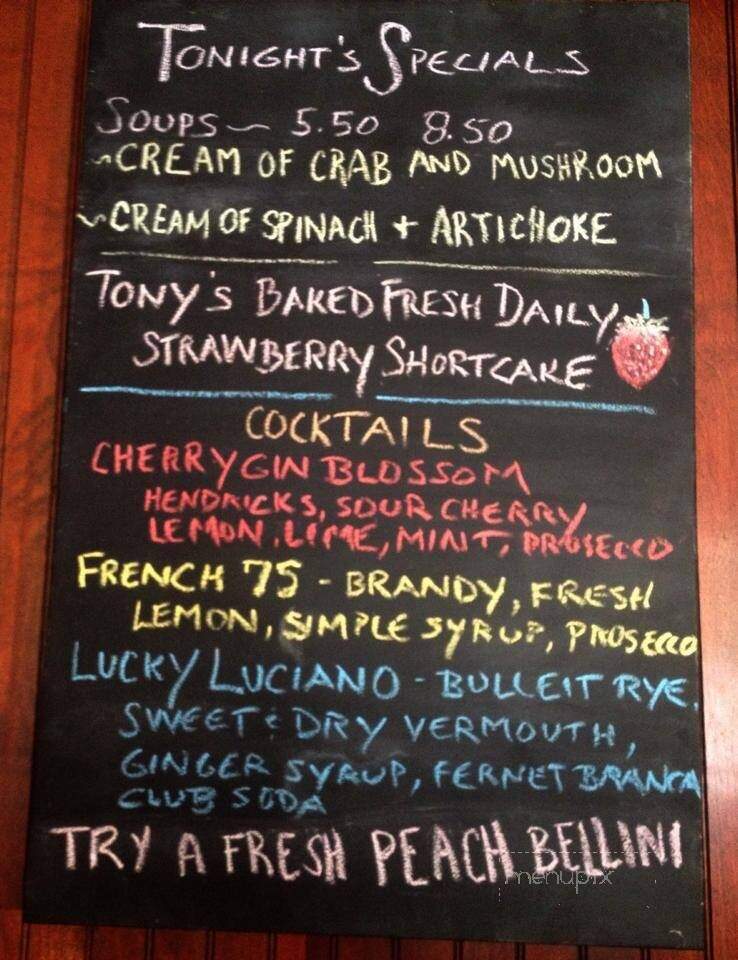 TONIGHT'S SPECIALS
SOUPS ~ 5.50 8.50
~CREAM OF CRAB AND MUSHROOM
~CREAM OF SPINACH + ARTICHOKE
TONY'S BAKED FRESH DAILY
STRAWBERRY SHORTCAKE
COCKTAILS
CHERRY GIN BLOSSOM
HENDRICKS, SOUR CHERRY
LEMON, LIME, MINT, PROSECCO
FRENCH 75 - BRANDY, FRESH
LEMON, SIMPLE SYRUP, PROSECCO
LUCKY LUCIANO - BULLEIT RYE,
SWEET & DRY VERMOUTH,
GINGER SYRUP, FERNET BRANCA
CLUB SODA
TRY A FRESH PEACH BELLINI
menupix